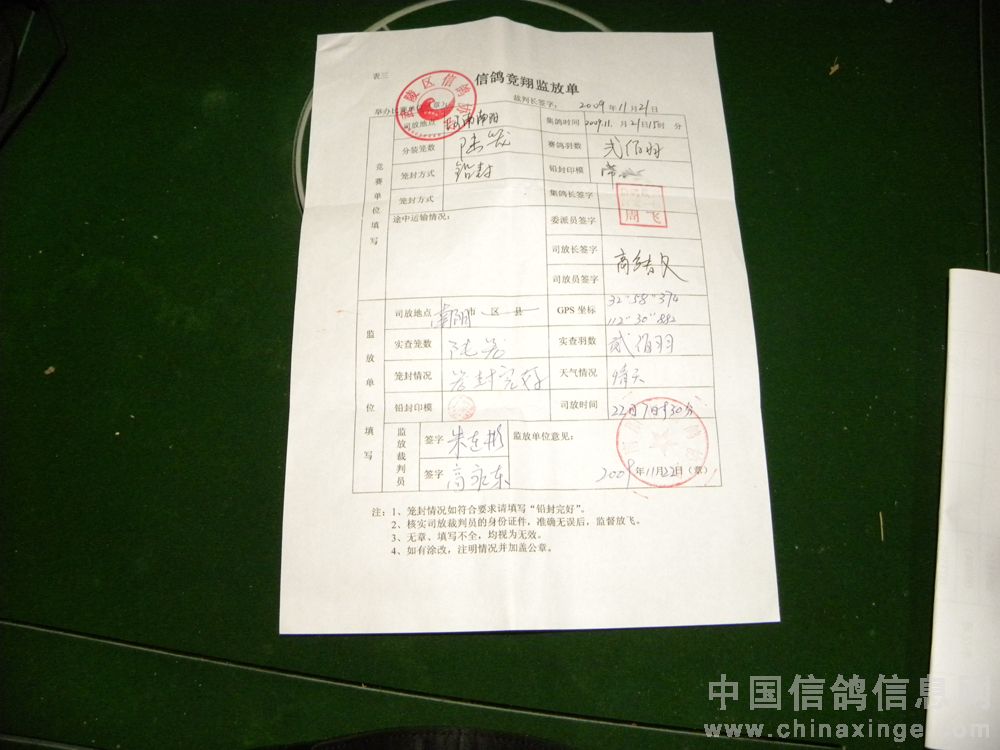 表三
信鸽竞翔监放单
裁判长签字： 2009年11月21日
司放地点 河南南阳 集鸽时间 2009.11.月21日15时 分
分装笼数 陆笼 赛鸽羽数 弍佰羽
笼封方式 铅封 铅封印模
笼封方式 集鸽长签字
途中运输情况： 委派员签字 周飞
司放长签字
司放员签字
竞赛单位填写
司放地点 南阳市 区 县 GPS坐标 32°58"374
112°30"892
实查笼数 陆笼 实查羽数 贰佰羽
笼封情况 笼封完好 天气情况 晴天
铅封印模 司放时间 22日7时30分
监放单位填写
监放裁判员 签字 朱连彬 监放单位意见：
签字 高永东 2009年11月22日（章）
注：1、笼封情况如符合要求请填写“铅封完好”。
2、核实司放裁判员的身份证件，准确无误后，监督放飞。
3、无章、填写不全，均视为无效。
4、如有涂改，注明情况并加盖公章。
中国信鸽信息网
www.chinaxinge.com